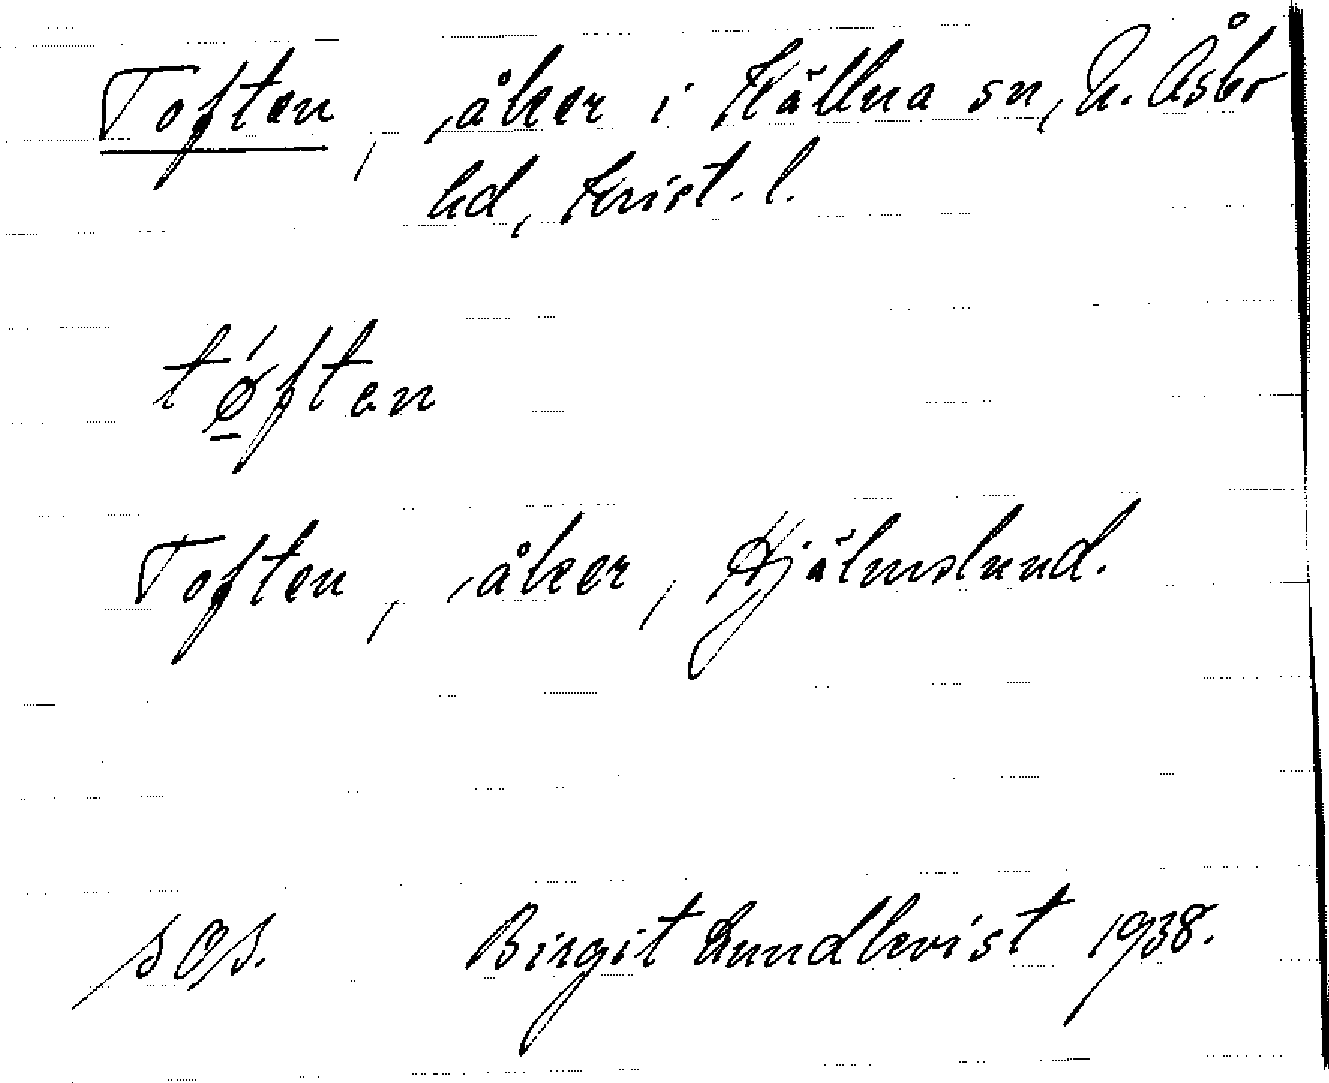 Toften, åker i Källna sn, N. Åsbo
hd, Krist. l.
tǿ̲ften
Toften, åker, Hjälmslund.
SOS. Birgit Lundkvist 1938.